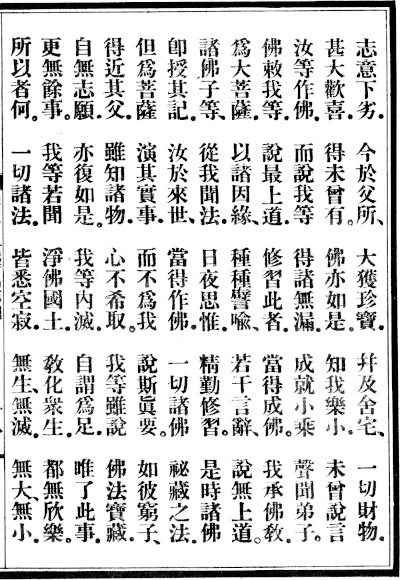 志意下劣。今於父所、大獲珍寶、幷及舍宅、一切財物。
甚大歡喜、得未曾有。佛亦如是。知我樂小、未曾說言、
汝等作佛。而說我等、得諸無漏、成就小乘、聲聞弟子。
佛敕我等、說最上道、修習此者、當得成佛。我承佛敎、
爲大菩薩、以諸因緣、種種譬喩、若干言辭、說無上道。
諸佛子等、從我聞法、日夜思惟、精勤修習。是時諸佛、
卽授其記、汝於來世、當得作佛。一切諸佛、祕藏之法、
但爲菩薩、演其實事、而不爲我、說斯眞要。如彼窮子、
得近其父、雖知諸物、心不希取。我等雖說、佛法寶藏、
自無志願、亦復如是。我等內滅、自謂爲足、唯了此事、
更無餘事。我等若聞、淨佛國土、敎化衆生、都無欣樂。
所以者何。一切諸法、皆悉空寂、無生無滅、無大無小、